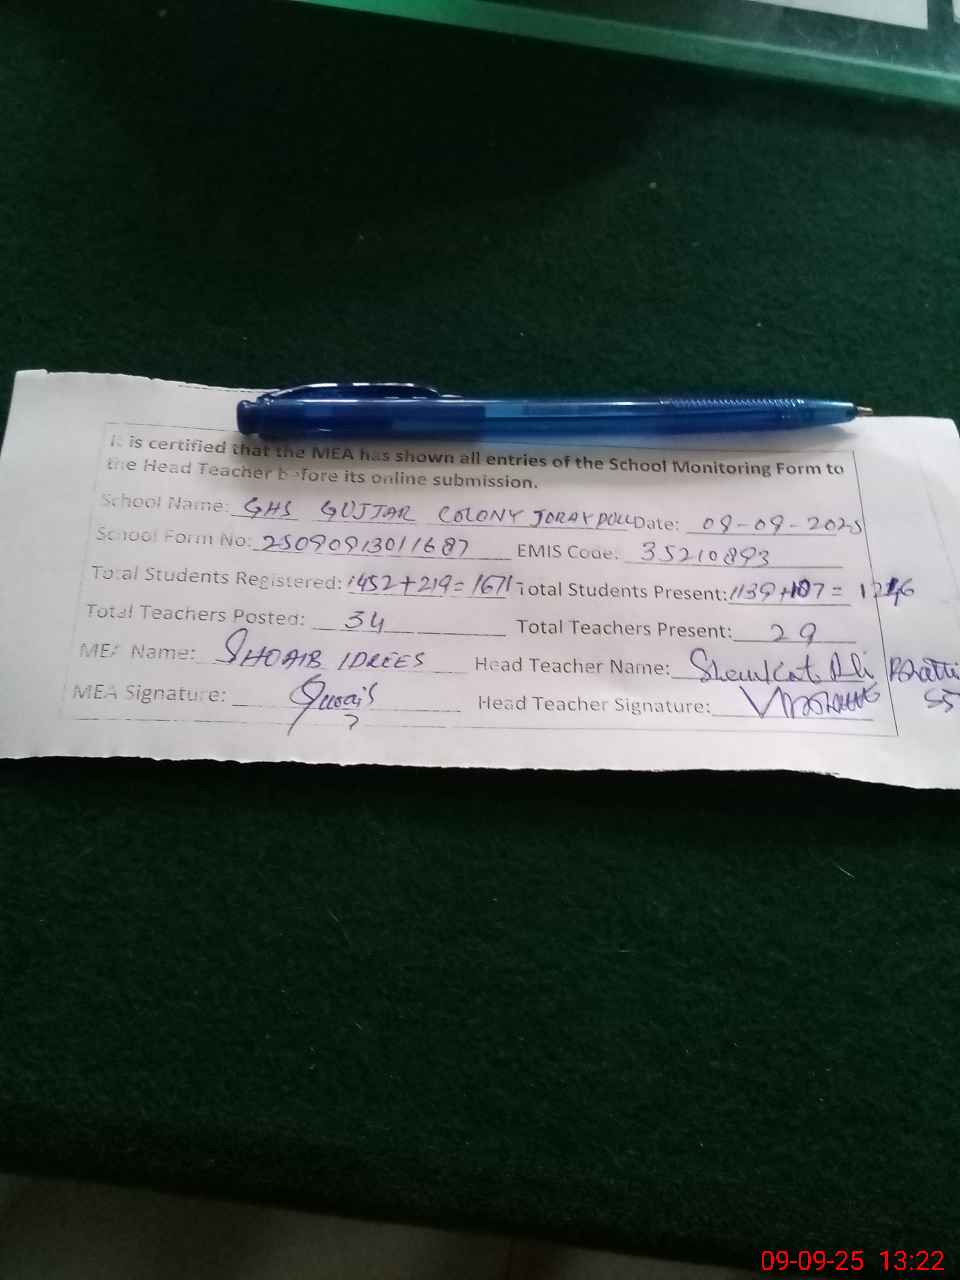 It is certified that the MEA has shown all entries of the School Monitoring Form to
the Head Teacher before its online submission.
School Name: GHS GUJJAR COLONY JORAY PULL Date: 09-09-2025
School Form No: 25090913011687 EMIS Code: 35210893
Total Students Registered: 1452+219=1671 Total Students Present: 1139+107= 1246
Total Teachers Posted: 34 Total Teachers Present: 29
MEA Name: SHOAIB IDREES Head Teacher Name: Shaukat Ali Bhatti
MEA Signature: Head Teacher Signature:
09-09-25 13:22